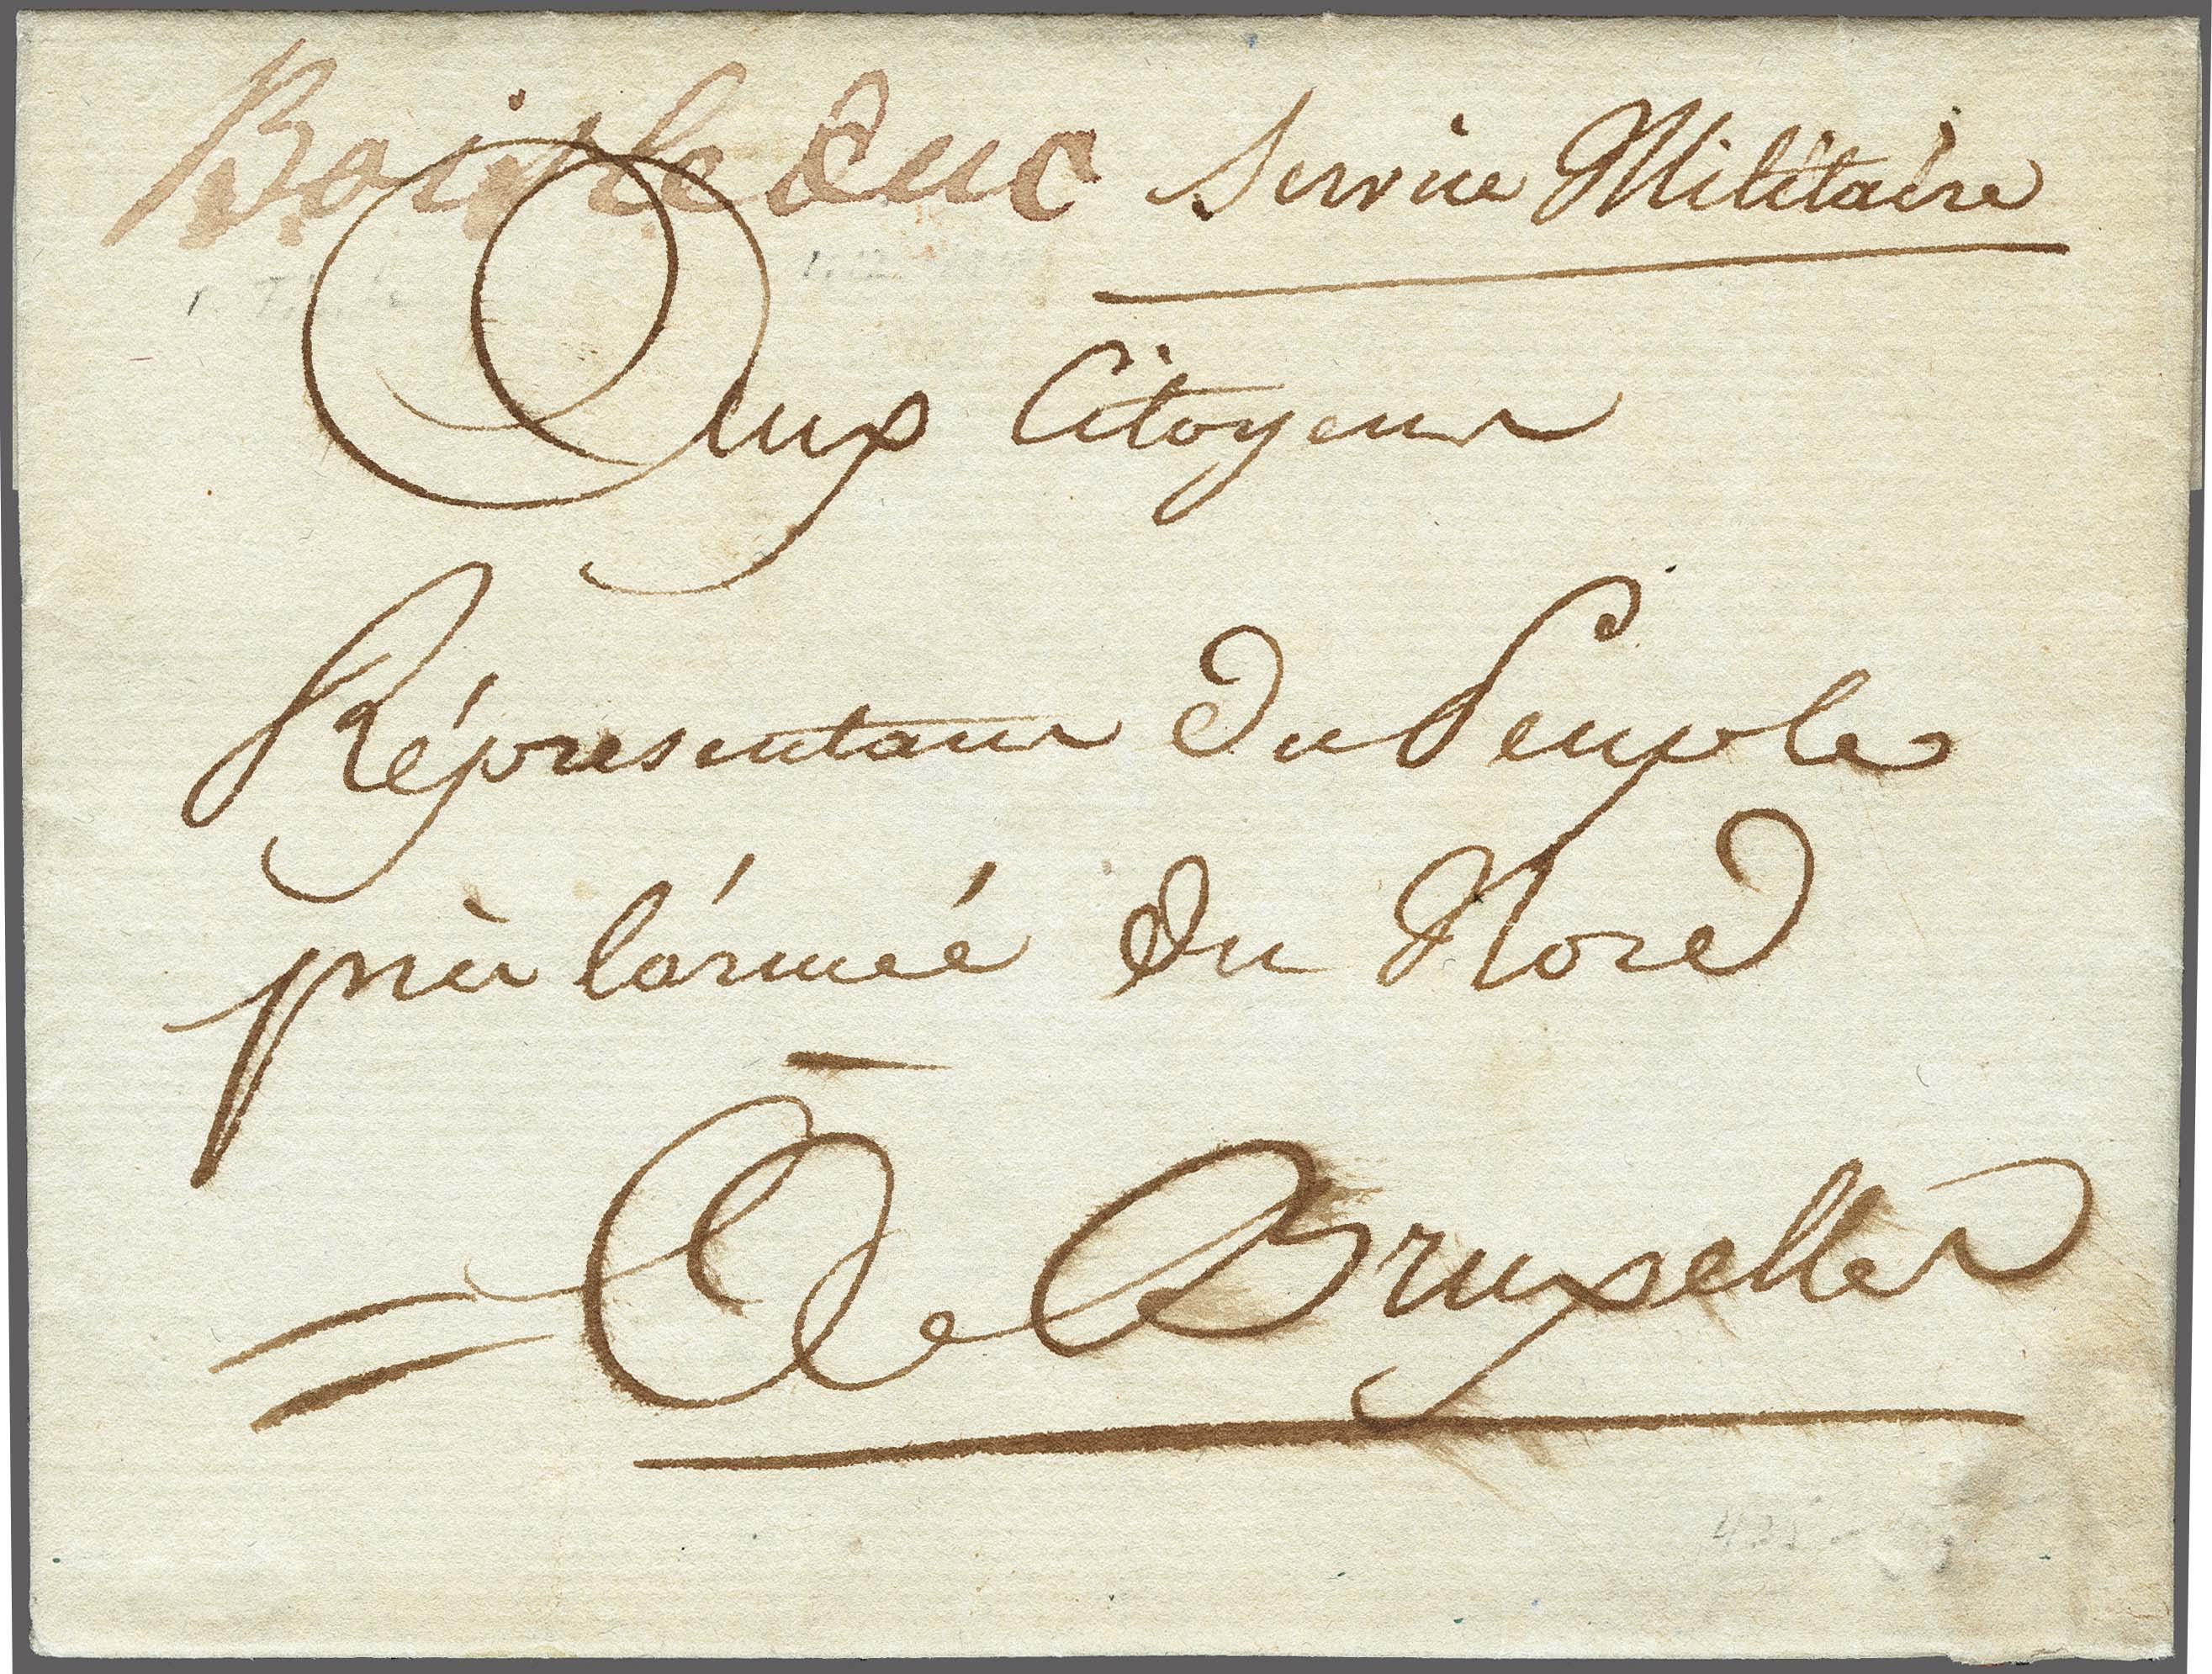 Boisleduc Service Militaire
Aux Citoyens
Réprésentans du Peuple
près l'armée du Nord
A Bruxelles